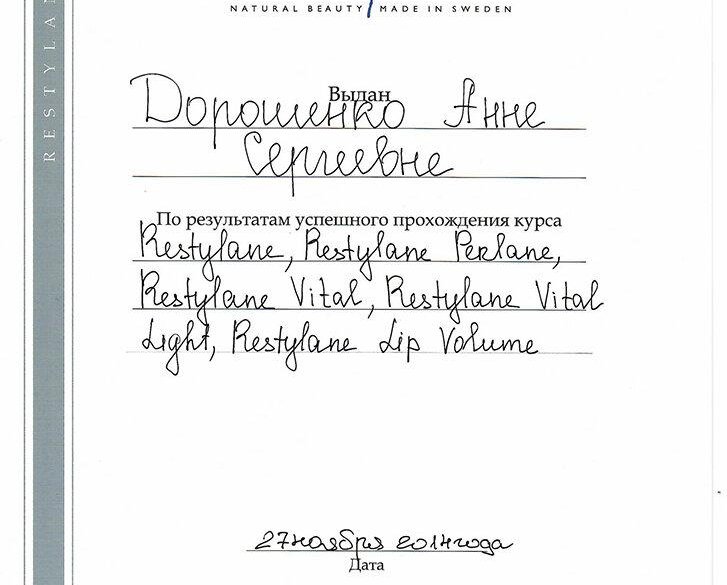 NATURAL BEAUTY MADE IN SWEDEN
RESTYLAN
Выдан
Дорошенко Анне
Сергеевне
По результатам успешного прохождения курса
Restylane, Restylane Perlane,
Restylane Vital, Restylane Vital
Light, Restylane Lip Volume
27 ноября 2014 года
Дата